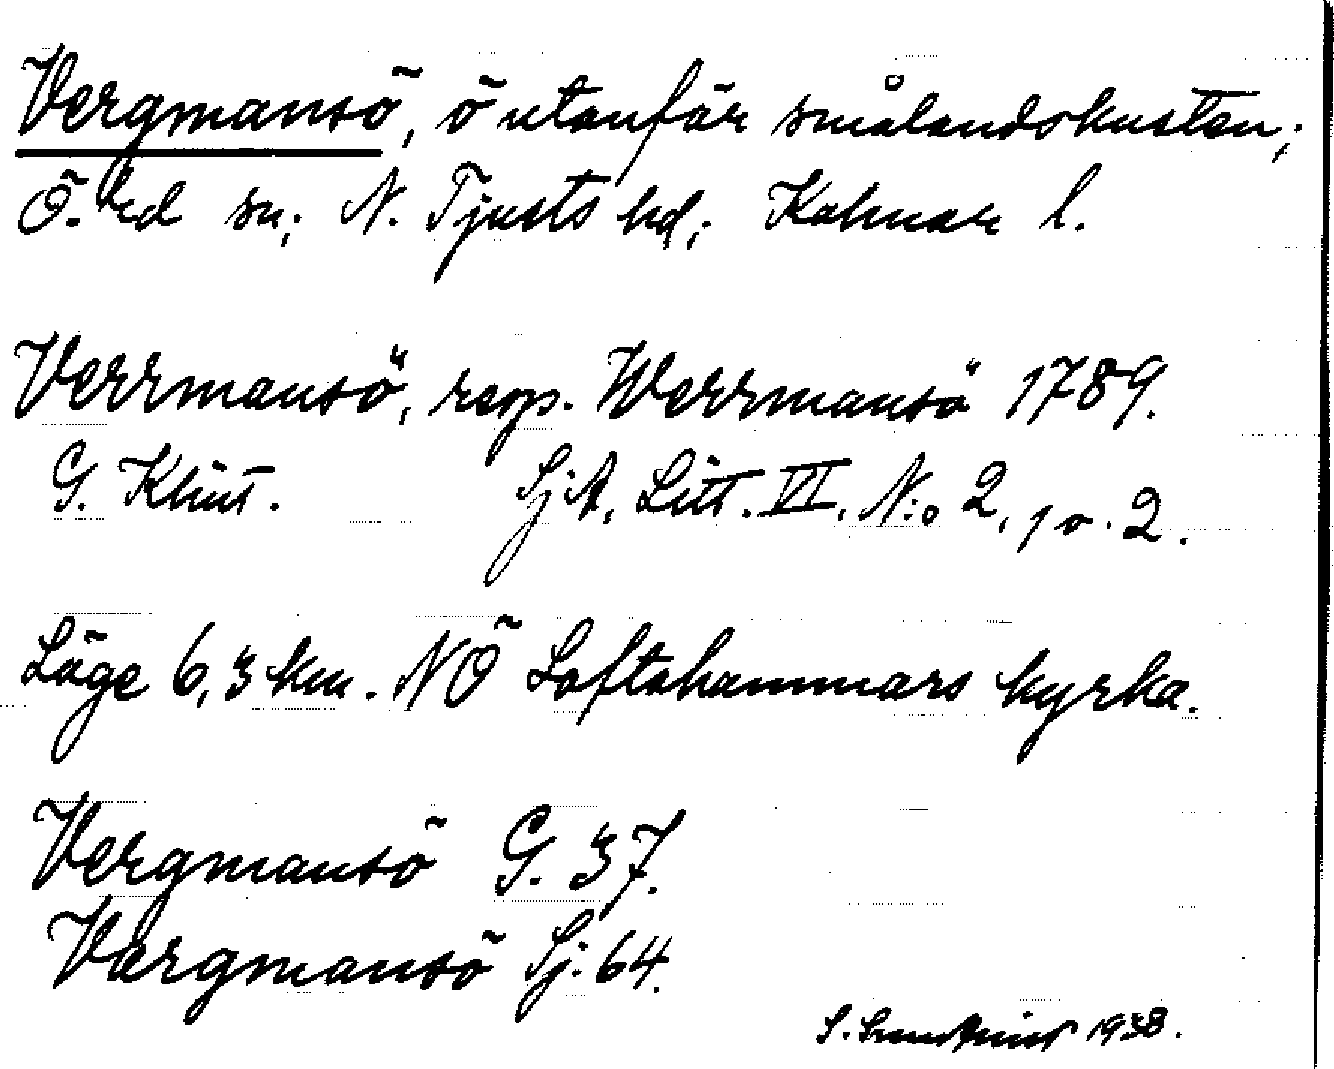 Vergmansö, ö utanför smålandskusten;
Ö. Ed sn; N. Tjusts hd; Kalmar l.
Verrmansö, resp. Werrmansö 1789.
G. Klint. SjA, Litt. VI. N:o 2, p. 2.
Läge 6,3 km. NÖ Loftahammars kyrka.
Vergmansö G. 37.
Vargmansö Sj. 64.
S. 1938.